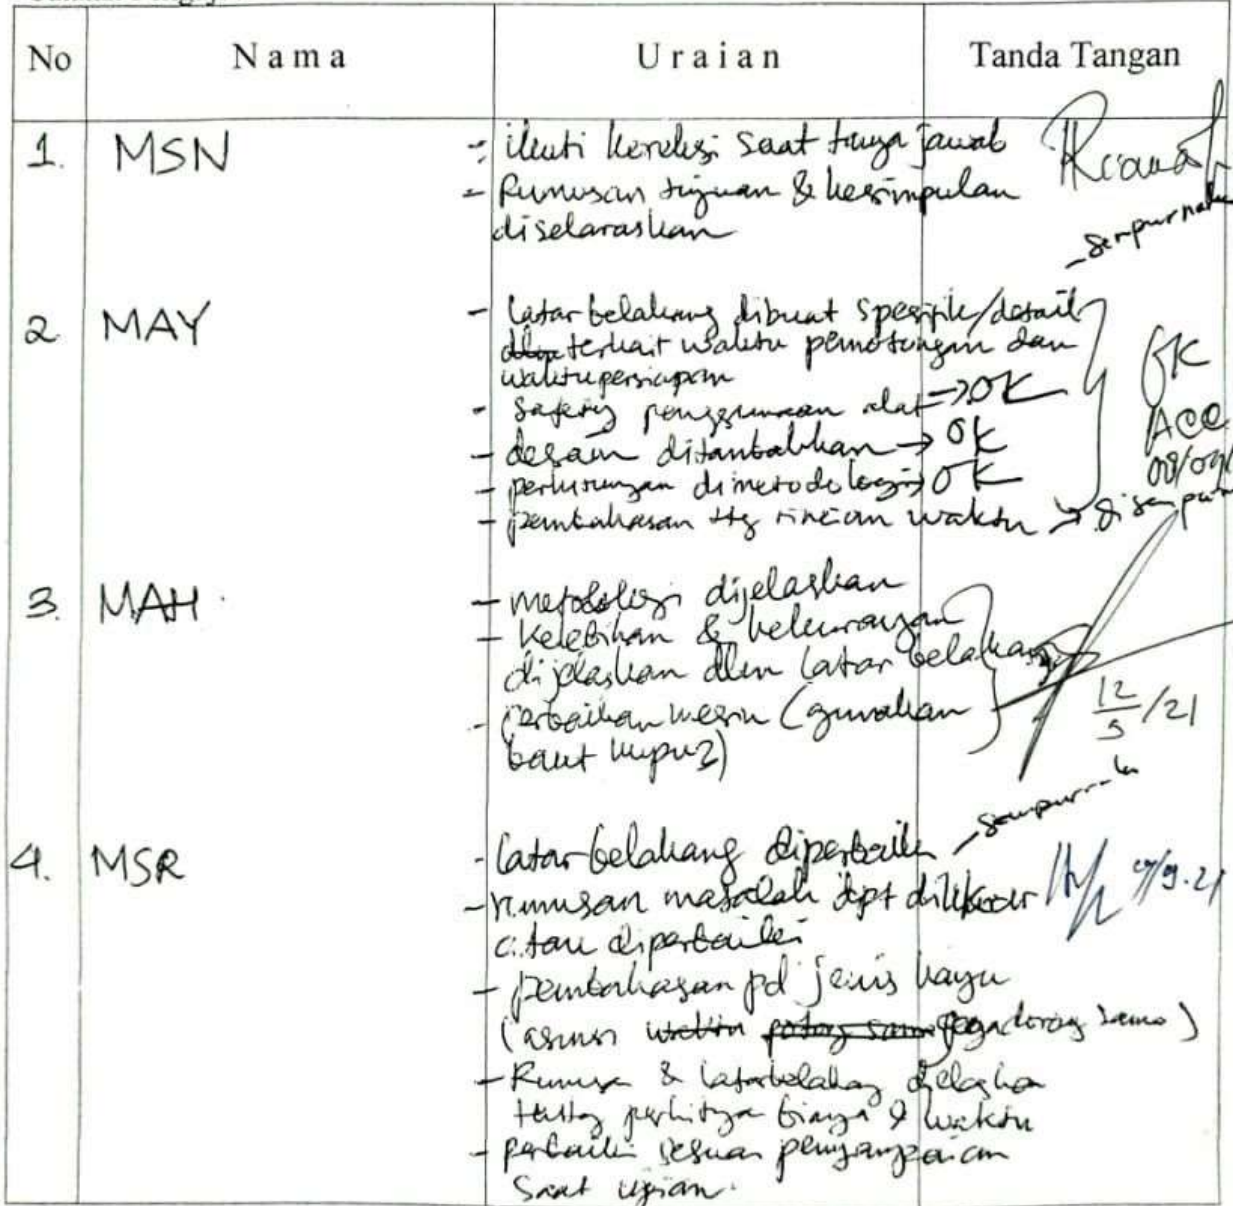 No Nama Uraian Tanda Tangan
1. MSN - ikuti koreksi saat tanya jawab
- Rumusan tujuan & kesimpulan
diselaraskan
2 MAY - latar belakang dibuat spesifik/detail
terkait waktu pemotongan dan
waktu persiapan
- Safety penggunaan alat → OK
- desain ditambahkan → OK
- perhitungan dimetodologi → OK
- pembahasan ttg rincian waktu →
OK
ACC
3. MAH - metodologi dijelaskan
- Kelebihan & kekurangan
dijelaskan dlm latar belakang
- perbaikan mesin (gunakan
baut kupu2)
12/5/21
4. MSR - latar belakang diperbaiki
- rumusan masalah dpt
atau diperbaiki
- pembahasan pd jenis kayu
(asumsi waktu potong sama)
- Rumusan & latar belakang dijelaskan
tentang perhitungan biaya & waktu
- perbaiki sesuai penyampaian
saat ujian.